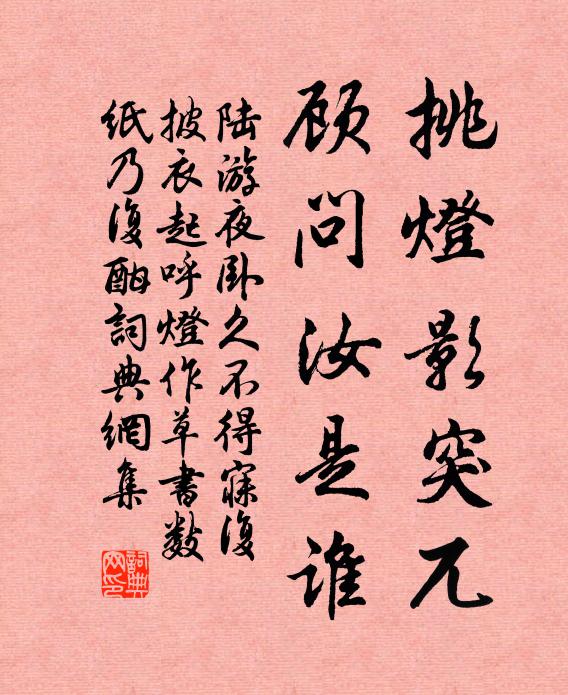 挑燈影突兀
顾问汝是谁
陆游夜卧久不得寐復
披衣起呼燈作草書数
纸乃復酣詞典網集
詞典网印